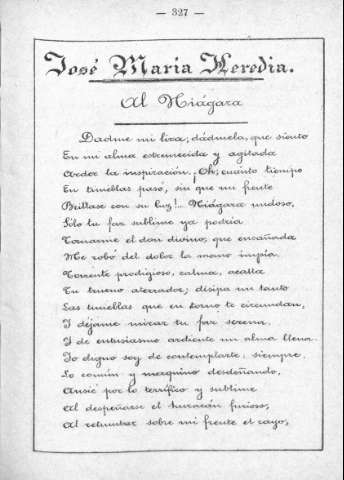 — 327 —
José María Heredia.
Al Niágara
Dadme mi lira, dádmela, que siento
En mi alma estremecida y agitada
Arder la inspiración. ¡Oh, cuánto tiempo
En tinieblas pasó, sin que mi frente
Brillase con su luz!... Niágara undoso,
Sólo tu faz sublime ya podría
Tornarme el don divino, que ensañada
Me robó del dolor la mano impía.
Torrente prodigioso, calma, acalla
Tu trueno aterrador; disipa un tanto
Las tinieblas que en torno te circundan,
Y déjame mirar tu faz serena,
Y de entusiasmo ardiente mi alma llena.
Yo digno soy de contemplarte: siempre,
Lo común y mezquino desdeñando,
Ansié por lo terrífico y sublime
Al despeñarse el huracán furioso,
Al retumbar sobre mi frente el rayo,